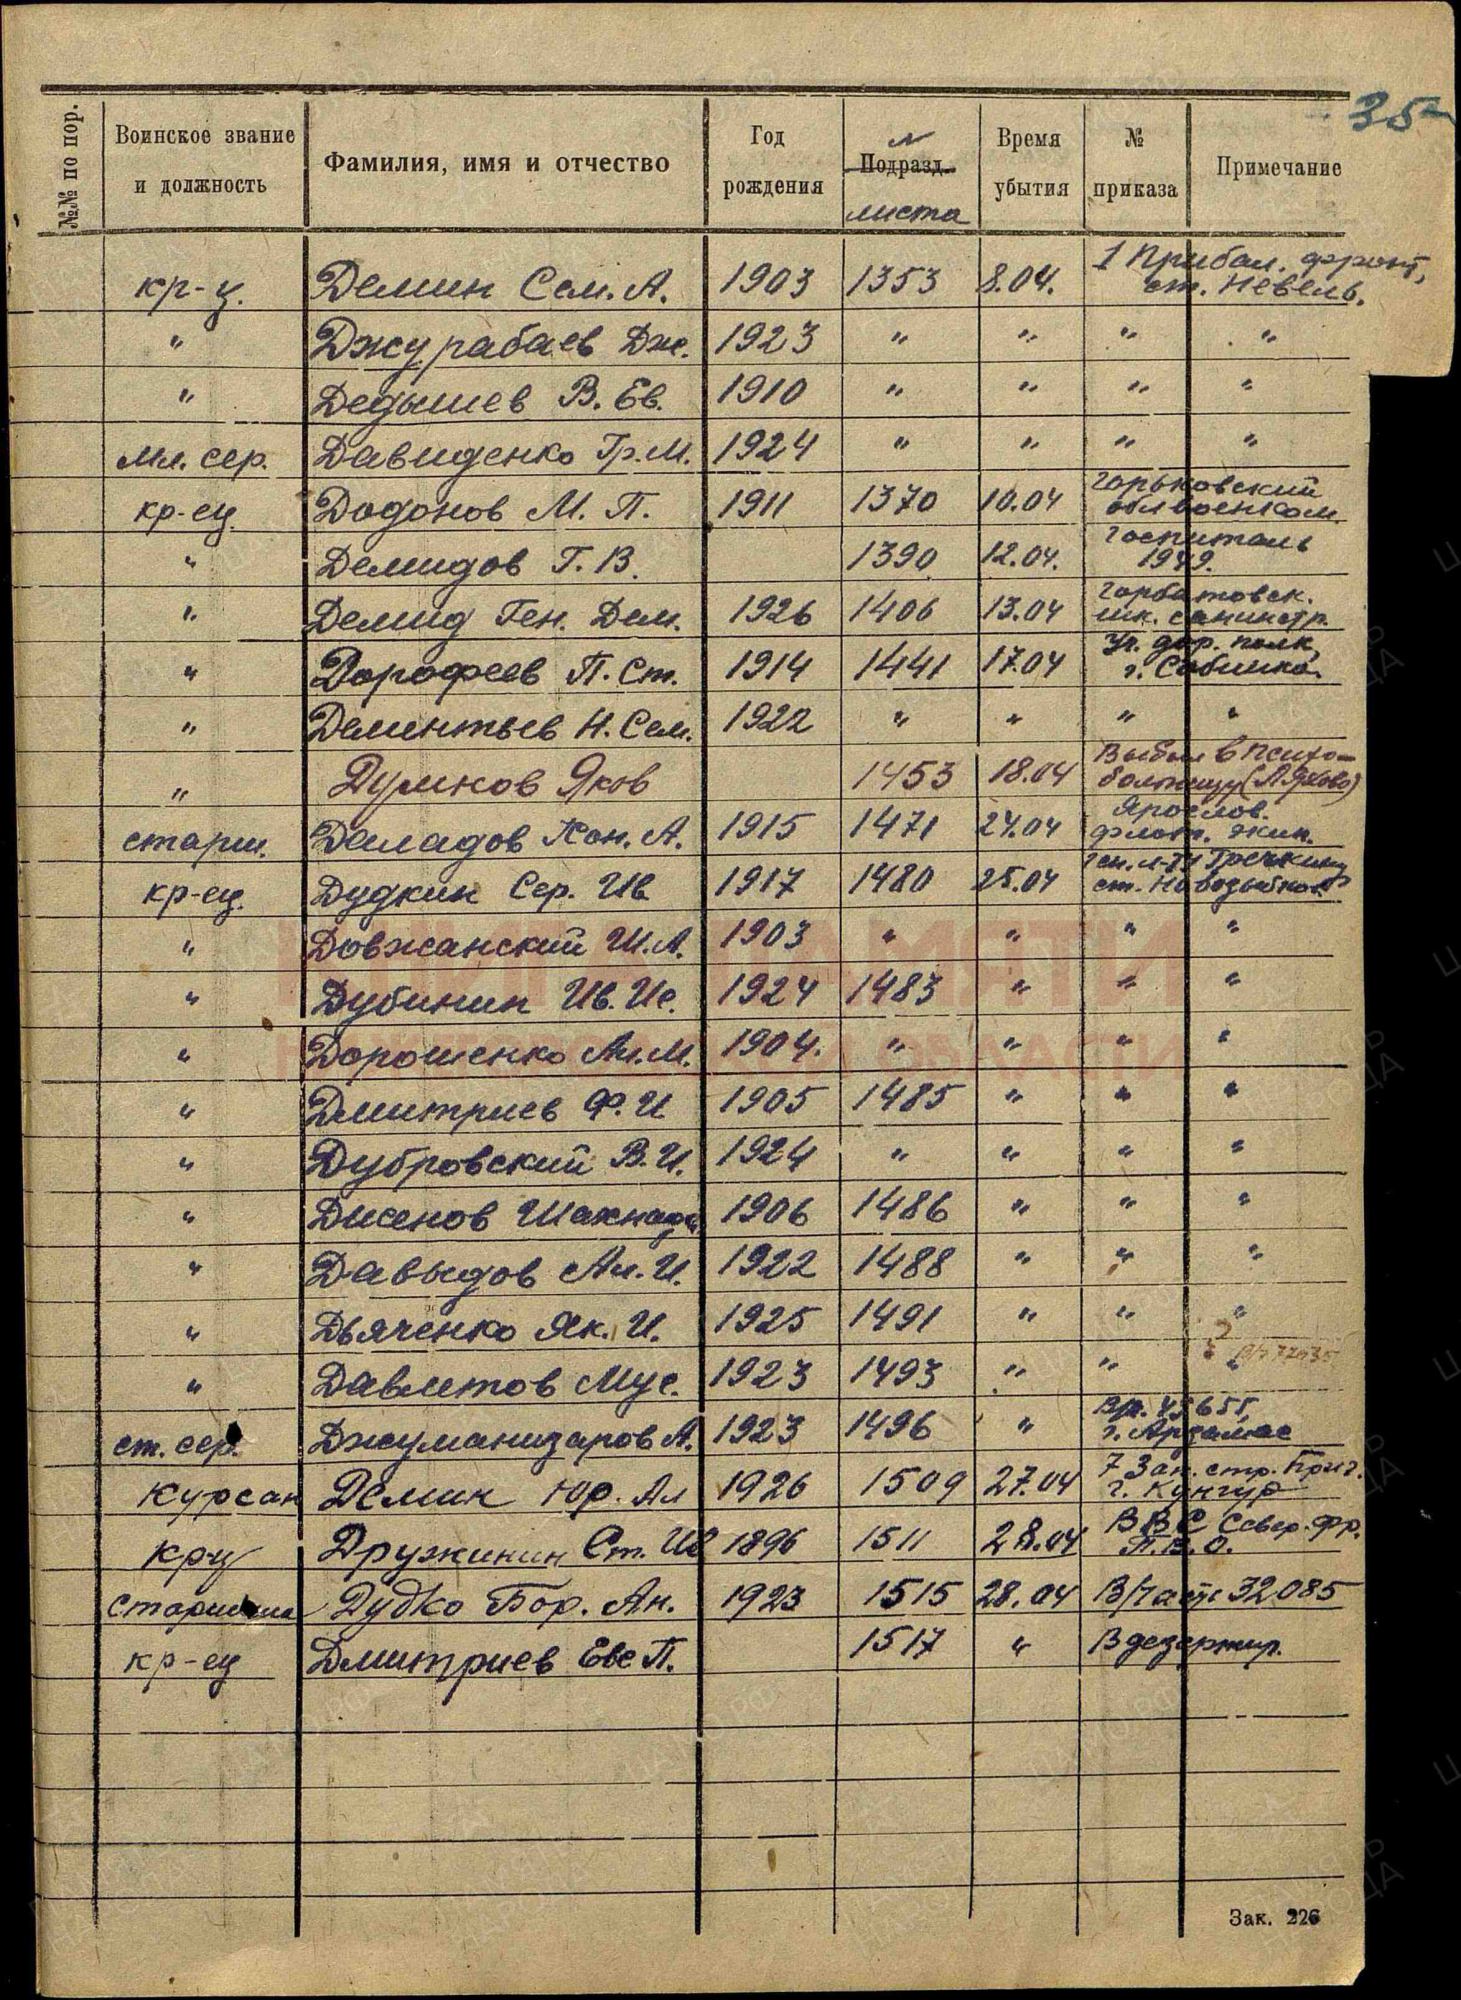 35
№№ по пор.
Воинское звание и должность
Фамилия, имя и отчество
Год рождения
№ Подразд. листа
Время убытия
№ приказа
Примечание
кр-ц. Демин Сем. А. 1903 1353 8.04. 1 Прибал. фронт, ст. Невель.
" Джурабаев Дж. 1923 " " " "
" Дедышев В. Ев. 1910 " " " "
мл. сер. Давиденко Гр. М. 1924 " " " "
кр-ец. Додонов М. П. 1911 1370 10.04 Горьковский облвоенком.
" Демидов Г. В. 1390 12.04. Госпиталь 1949.
" Демид Ген. Дем. 1926 1406 13.04 Горбатовск. шк. санинстр.
" Дорофеев П. Ст. 1914 1441 17.04 Уч. дор. полк, г.
" Дементьев Н. Сем. 1922 " " " "
" Думнов Яков 1453 18.04 Выбыл в психо-больницу (Ляхово)
старш. Даладов Кон. А. 1915 1471 24.04 Ярослов. флот. экип.
кр-ец. Дудкин Сер. Ив 1917 1480 25.04 Ген. л-ту Гречкину ст. Новозыбков
" Довжанский Ш. А. 1903 " " " "
" Дубинин Ив. Ис. 1924 1483 " " "
" Дорошенко Ал. М. 1904. " " " "
" Дмитриев Ф. И 1905 1485 " " "
" Дубровский В. И. 1924 " " " "
" Дисенов 1906 1486 " " "
" Давыдов Ал. И. 1922 1488 " " "
" Дьяченко Як. И. 1925 1491 " " "
" Давлетов Мус. 1923 1493 " " "
ст. сер. Джуманизаров А. 1923 1496 " В/ч. 45655, г. Арзамас
Курсан Дёмин Юр. Ал 1926 1509 27.04 7 Зап. стр. Бриг. г. Кунгур
кр-ц Дружинин Ст. Ив 1896 1511 28.04 ВВС Север. Фр. П.В.О.
старшина Дудко Бор. Ан. 1923 1515 28.04 В/часть 32085
кр-ец Дмитриев Евс П. 1517 " В дезертир.
КНИГА ПАМЯТИ
НИЖЕГОРОДСКОЙ ОБЛАСТИ
Зак. 226